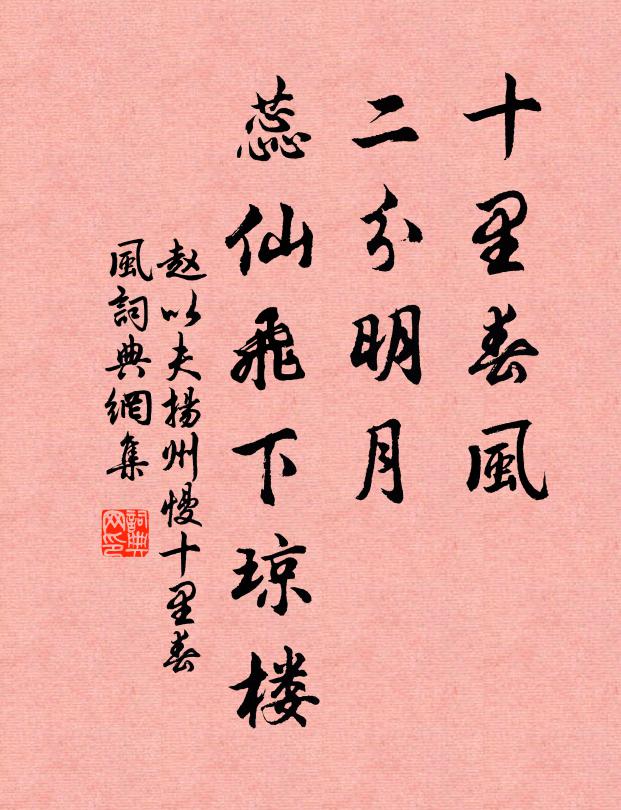 十里春風
二分明月
蕊仙飛下琼楼
赵以夫揚州慢十里春
風詞典網集
詞典
网印